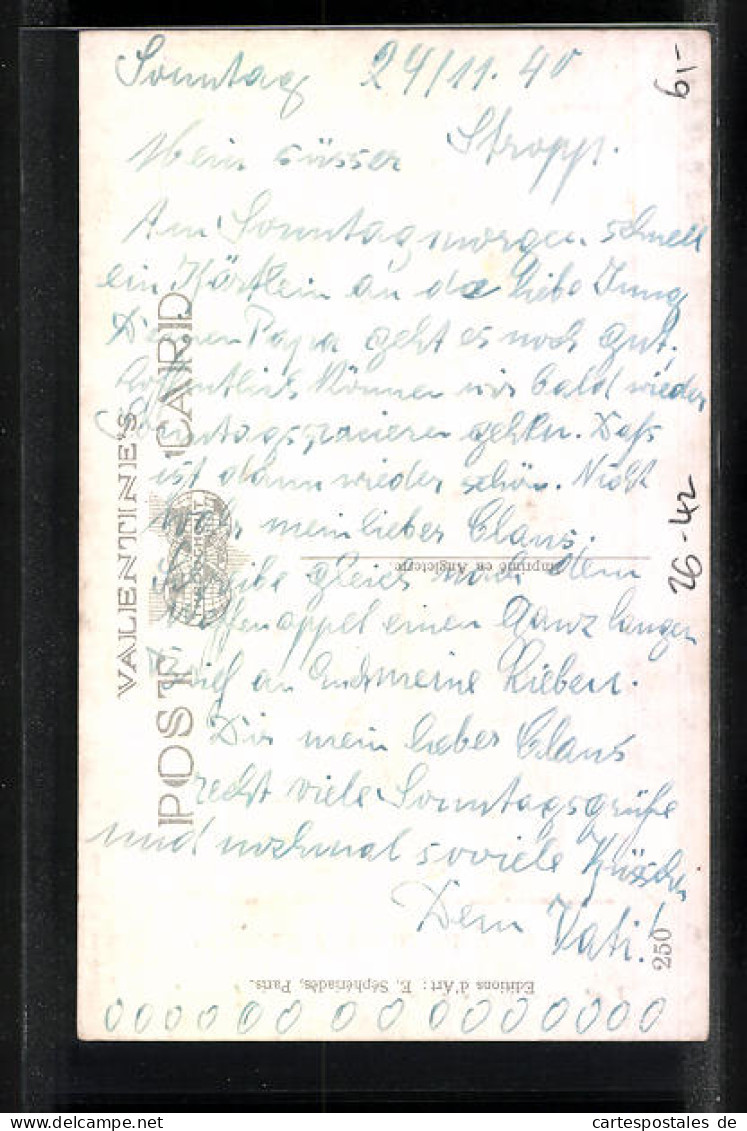 Sonntag 24/11.40
Mein süsser Stropp.
Am Sonntagmorgen schnell
ein Kärtlein an de liebe Jung
Deinen Papa geht es noch gut,
hoffentlich können wir bald wieder
Sonntagspazieren gehen. Daß
ist dann wieder schön. Nicht
wahr mein lieber Claus.
Schreibe gleich nach dem
einen Ganz langen
Brief an Euch meine Lieben.
Dir mein lieber Claus
recht viele Sonntagsgrüße
und nochmal soviele Küsschen
Dein Vati!
000000 00 00000000
VALENTINE'S
POST CARD
Imprimé en Angleterre.
Editions d'Art : E. Séphériadès, Paris.
250
61-
26-42
cartespostales de